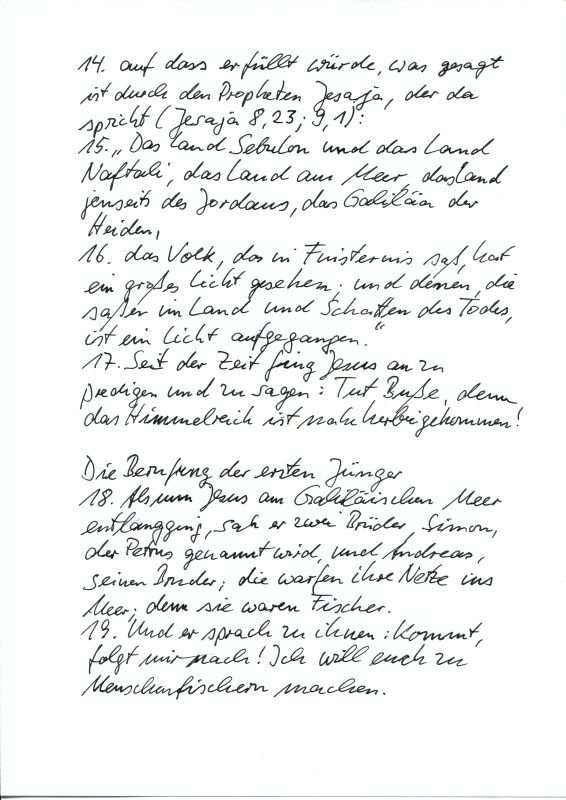 14. auf dass erfüllt würde, was gesagt
ist durch den Propheten Jesaja, der da
spricht (Jesaja 8,23; 9,1):
15. „Das Land Sebulon und das Land
Naftali, das Land am Meer, das Land
jenseits des Jordans, das Galiläa der
Heiden,
16. das Volk, das in Finsternis saß, hat
ein großes Licht gesehen; und denen, die
saßen im Land und Schatten des Todes,
ist ein Licht aufgegangen.“
17. Seit der Zeit fing Jesus an zu
predigen und zu sagen: Tut Buße, denn
das Himmelreich ist nahe herbeigekommen!
Die Berufung der ersten Jünger
18. Als nun Jesus am Galiläischen Meer
entlangging, sah er zwei Brüder, Simon,
der Petrus genannt wird, und Andreas,
seinen Bruder; die warfen ihre Netze ins
Meer; denn sie waren Fischer.
19. Und er sprach zu ihnen: Kommt,
folgt mir nach! Ich will euch zu
Menschenfischern machen.